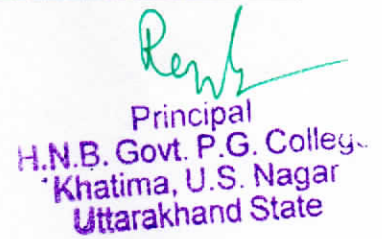 Principal
H.N.B. Govt. P.G. Colleg
Khatima, U.S. Nagar
Uttarakhand State